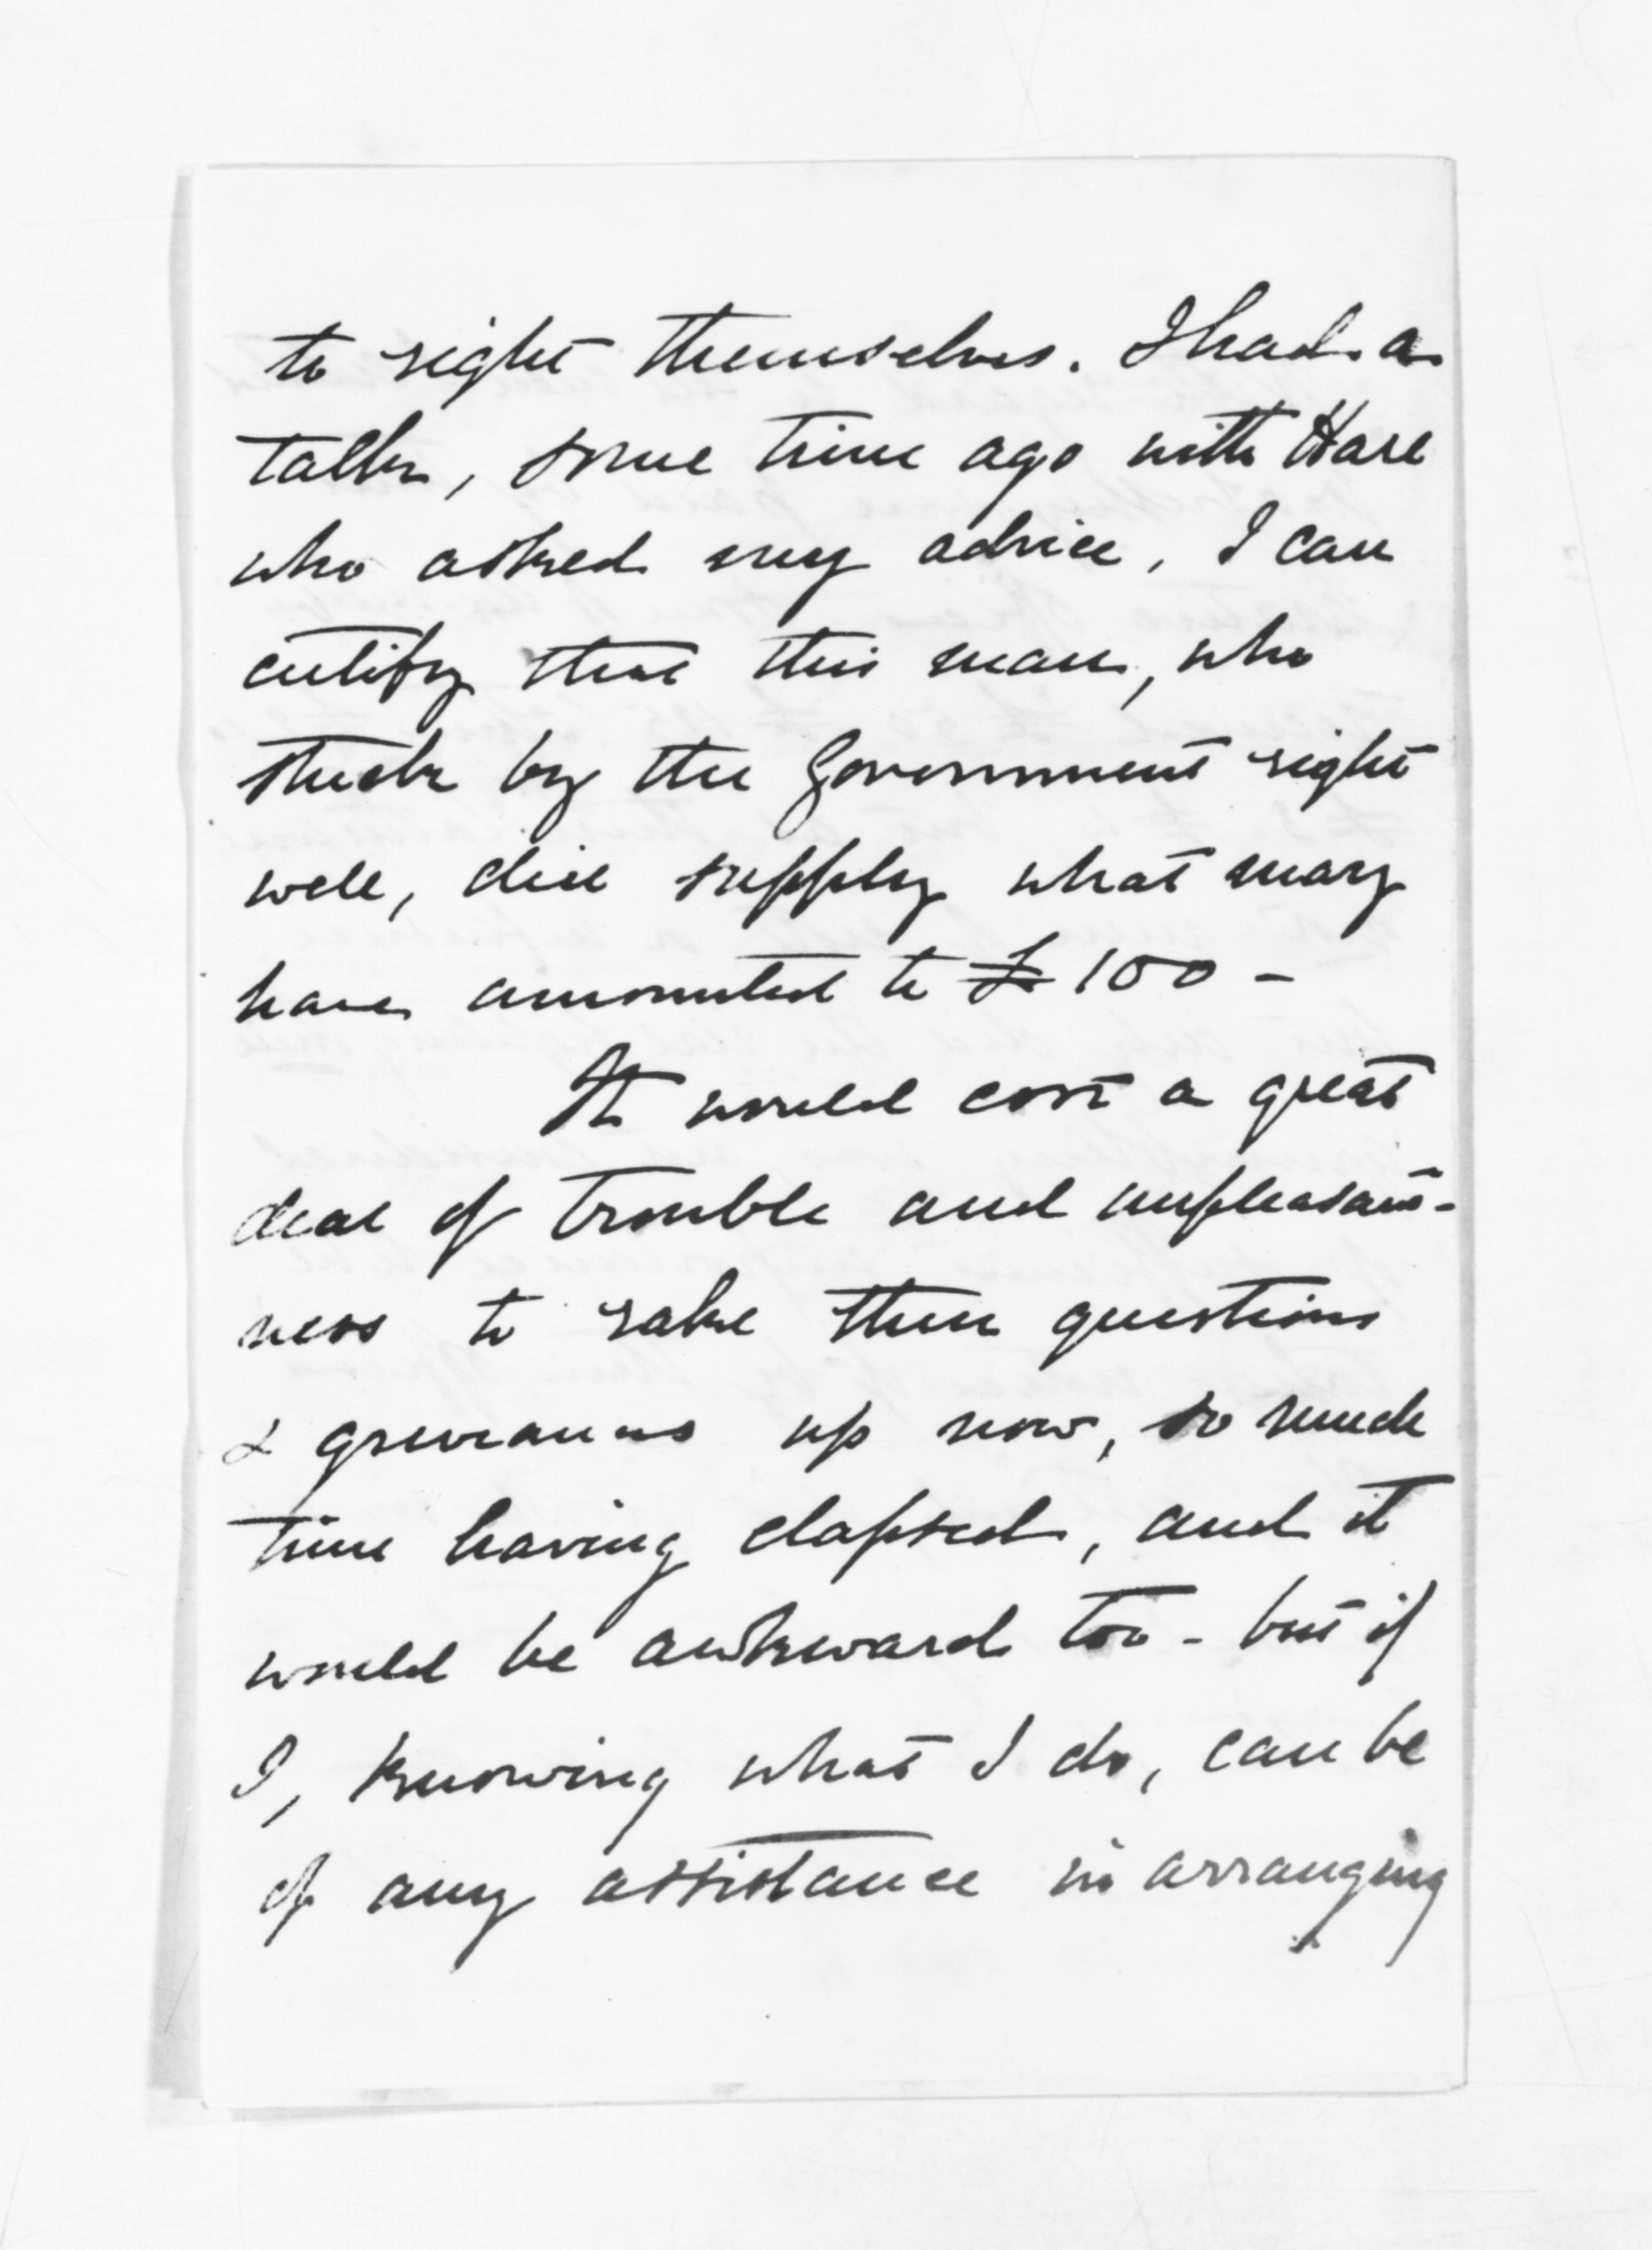 to right themselves. I had a
talk, some time ago with Hare
who asked my advice, I can
certify that this man, who
stuck by the Government right
well, did supply what may
have amounted to £100 -
It would cost a great
deal of trouble and unpleasant-
ness to rake these questions
& grievances up now, so much
time having elapsed, and it
would be awkward too - but if
I, knowing what I do, can be
of any assistance in arranging